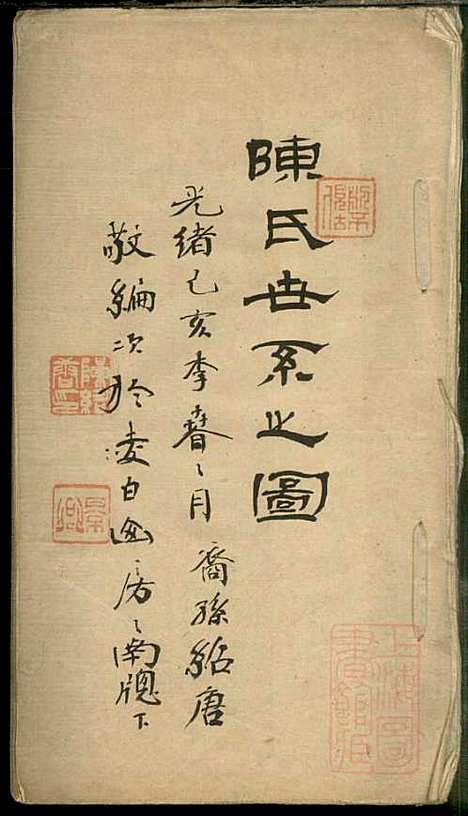 陳氏世系之圖
光緒己亥季春之月 裔孫紹唐
敬編次於 白 房之南牕下
陳紹唐印
景卿
上海圖書館藏